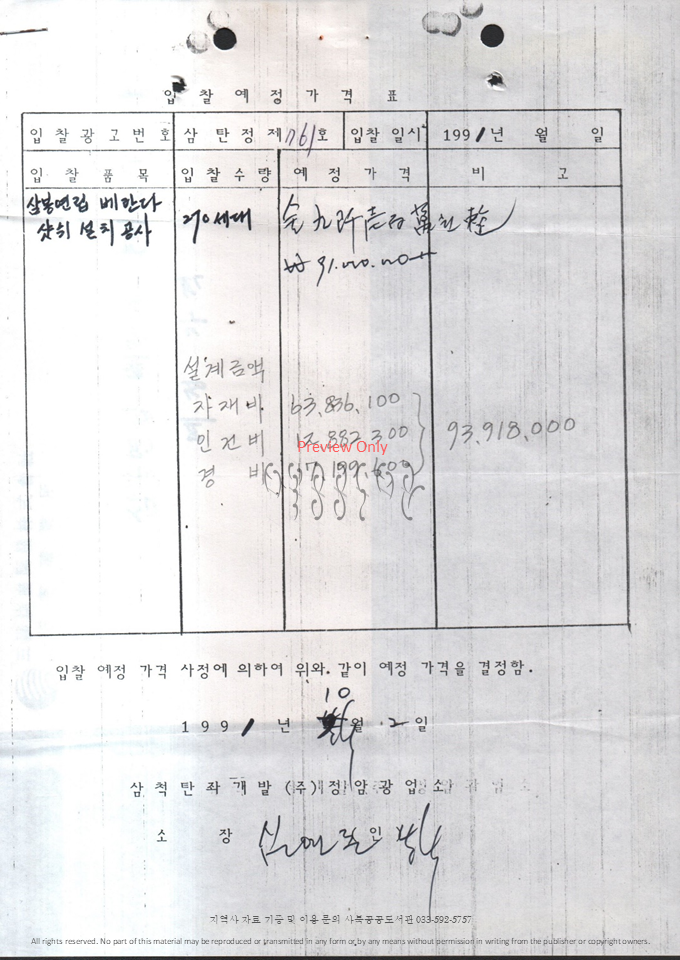 입 찰 예 정 가 격 표
입 찰 광 고 번 호 삼 탄 정 제 761 호 입찰 일시 1991 년 월 일
입 찰 품 목 입 찰 수 량 예 정 가 격 비 고
삼봉연립 베란다 270세대
샷시 설치 공사
설계금액
자재비 63,836,100
인건비 12,882,300 93,918,000
경 비 17,199,600
Preview Only
입찰 예정 가격 사정에 의하여 위와 같이 예정 가격을 결정함.
10
1991 년 월 2 일
삼척탄좌개발(주)정암광업소
소 장 인
지역사 자료 기증 및 이용 문의 사북공공도서관 033-592-5757
All rights reserved. No part of this material may be reproduced or transmitted in any form or by any means without permission in writing from the publisher or copyright owners.